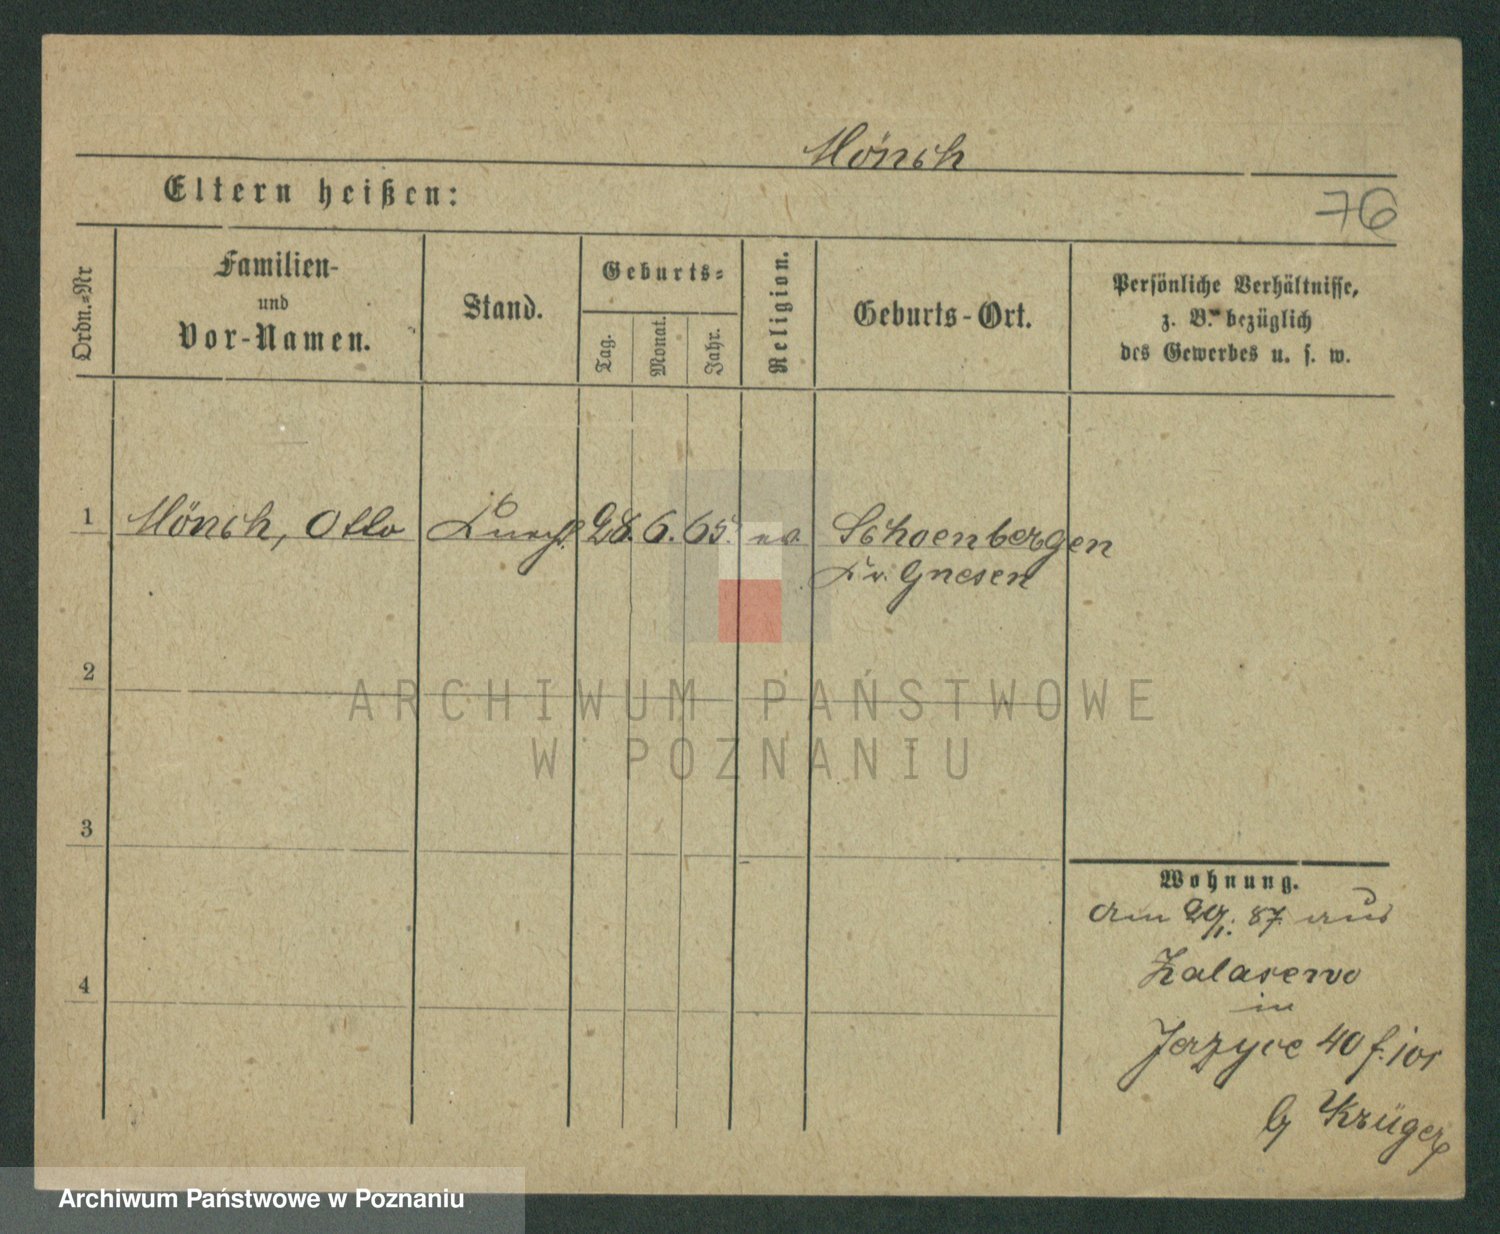 Mönch
Eltern heißen:
76
Ordn.=Nr
Familien-
und
Vor-Namen.
Stand.
Geburts=
Tag.
Monat.
Jahr.
Religion.
Geburts-Ort.
Persönliche Verhältnisse,
z. B. bezüglich
des Gewerbes u. s. w.
1 Mönch, Otto Knecht 28. 6. 65. ev. Schoenbergen
Kr. Gnesen
2
ARCHIWUM PAŃSTWOWE
W POZNANIU
3
Wohnung.
am 87 aus
Zalasewo
4
in
Jerzyce 40
b/ Krüger
Archiwum Państwowe w Poznaniu